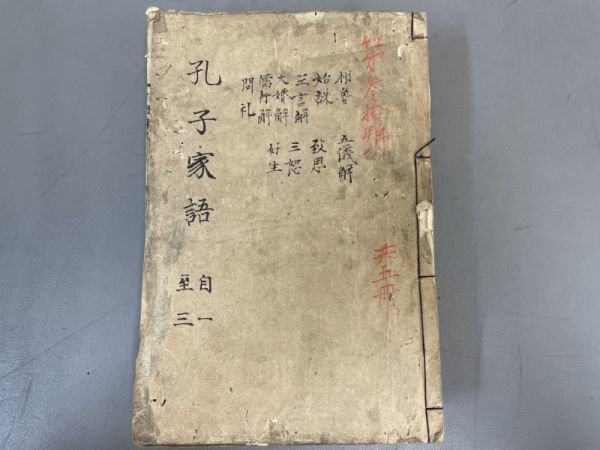 第叁拾號
共五冊
相魯 五儀解
始誅 致思
王言解 三恕
大婚解 好生
儒行解
問礼
孔子家語
自一
至三